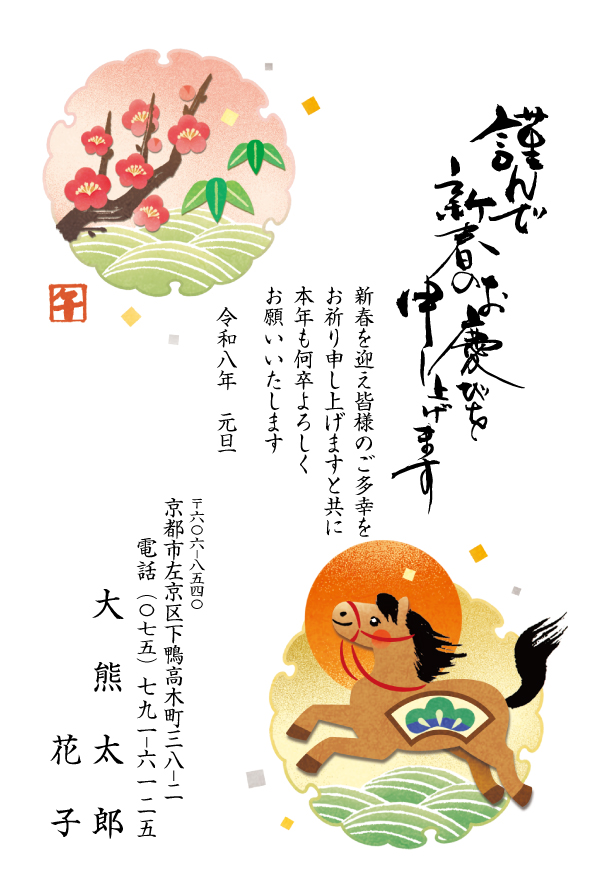 謹んで
新春のお慶びを
申し上げます
新春を迎え皆様のご多幸を
お祈り申し上げますと共に
本年も何卒よろしく
お願いいたします
令和八年　元旦
午
〒六〇六−八五四〇
京都市左京区下鴨高木町三八−二
電話（〇七五）七九一−六一二五
大熊太郎
花子